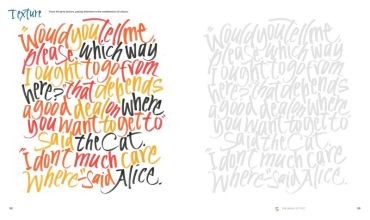 Texture
"Would you tell me,
please, which way
I ought to go from
here?" "that depends
a good deal on where
you want to get to"
Said the Cat.
"I don't much care
Where" said Alice.
"Would you tell me,
please, which way
I ought to go from
here?" "that depends
a good deal on where
you want to get to"
Said the Cat.
"I don't much care
Where" said Alice.